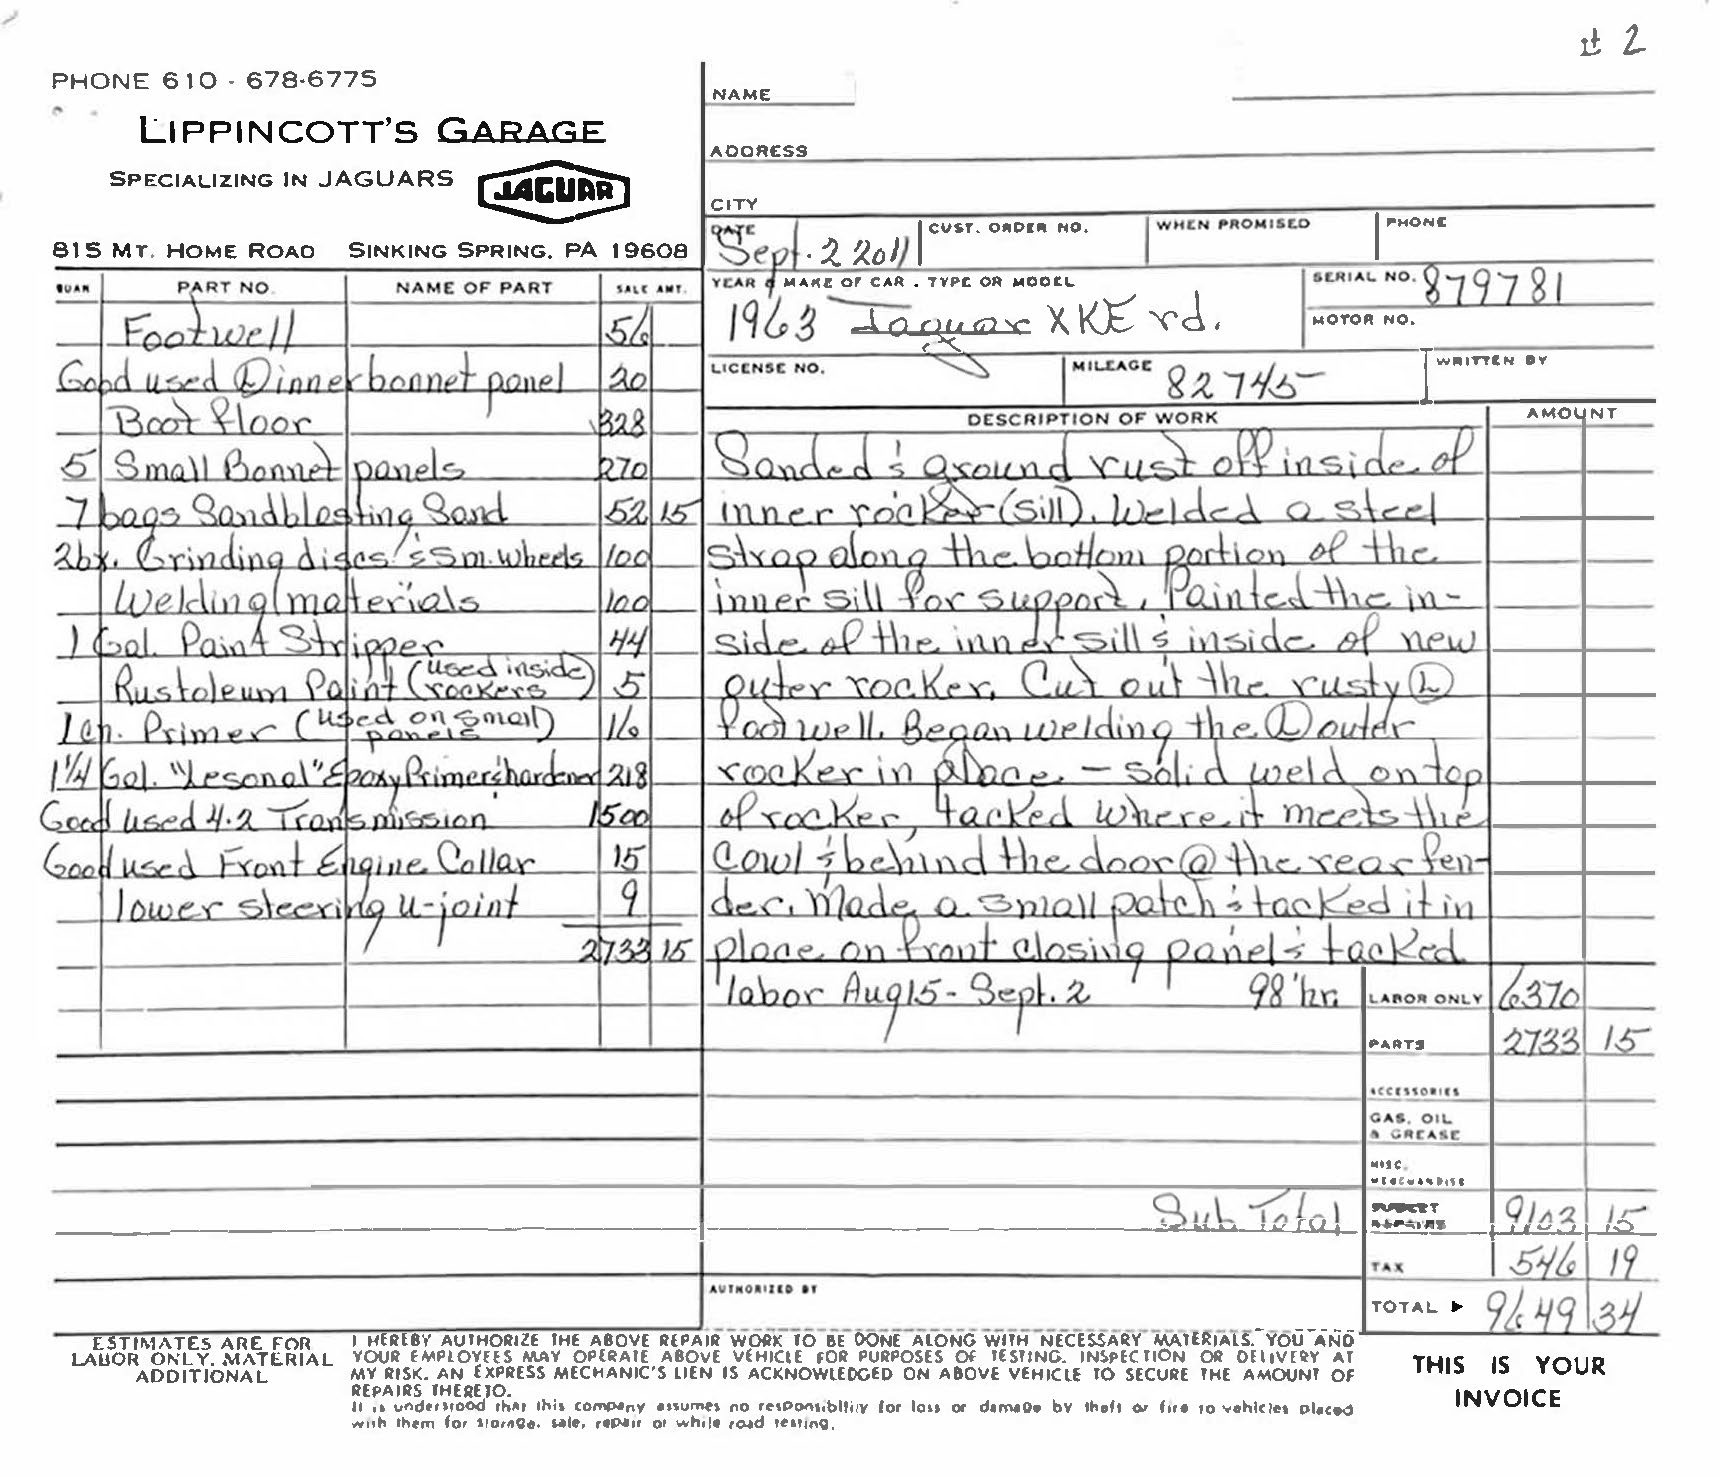 # 2
PHONE 610 - 678-6775
LIPPINCOTT'S GARAGE
SPECIALIZING IN JAGUARS JAGUAR
815 MT. HOME ROAD SINKING SPRING, PA 19608
NAME
ADDRESS
CITY
DATE Sept. 2 2011 CUST. ORDER NO. WHEN PROMISED PHONE
YEAR & MAKE OF CAR . TYPE OR MODEL SERIAL NO. 879781
1963 Jaguar XKE rd. MOTOR NO.
LICENSE NO. MILEAGE 82745 WRITTEN BY
QUAN PART NO. NAME OF PART SALE AMT.
Footwell 56
Good used (L) inner bonnet panel 20
Boot floor 328
5 Small Bonnet panels 270
7 bags Sandblasting Sand 52 15
2bx. Grinding discs & sm. wheels 100
Welding materials 100
1 Gal. Paint Stripper 44
Rustoleum Paint (used inside rockers) 5
1 qn. Primer (used on small panels) 16
1 1/4 Gal. "Lesonal" Epoxy Primer & hardener 218
Good used 4.2 Transmission 1500
Good used Front Engine Collar 15
lower steering u-joint 9
2733 15
DESCRIPTION OF WORK AMOUNT
Sanded & ground rust off inside of
inner rocker (sill). Welded a steel
strap along the bottom portion of the
inner sill for support. Painted the in-
side of the inner sill & inside of new
outer rocker. Cut out the rusty (L)
footwell. Began welding the (L) outer
rocker in place - solid weld on top
of rocker, tacked where it meets the
cowl & behind the door @ the rear fen-
der. Made a small patch & tacked it in
place on front closing panel & tacked
labor Aug 15 - Sept. 2 98 hr. LABOR ONLY 6370
PARTS 2733 15
ACCESSORIES
GAS, OIL & GREASE
MISC. MERCHANDISE
Sub Total SUBLET REPAIRS 9103 15
TAX 546 19
AUTHORIZED BY
TOTAL ▶ 9649 34
ESTIMATES ARE FOR
LABOR ONLY. MATERIAL
ADDITIONAL
I HEREBY AUTHORIZE THE ABOVE REPAIR WORK TO BE DONE ALONG WITH NECESSARY MATERIALS. YOU AND
YOUR EMPLOYEES MAY OPERATE ABOVE VEHICLE FOR PURPOSES OF TESTING. INSPECTION OR DELIVERY AT
MY RISK. AN EXPRESS MECHANIC'S LIEN IS ACKNOWLEDGED ON ABOVE VEHICLE TO SECURE THE AMOUNT OF
REPAIRS THERETO.
It is understood that this company assumes no responsibility for loss or damage by theft or fire to vehicles placed
with them for storage, sale, repair or while road testing.
THIS IS YOUR
INVOICE